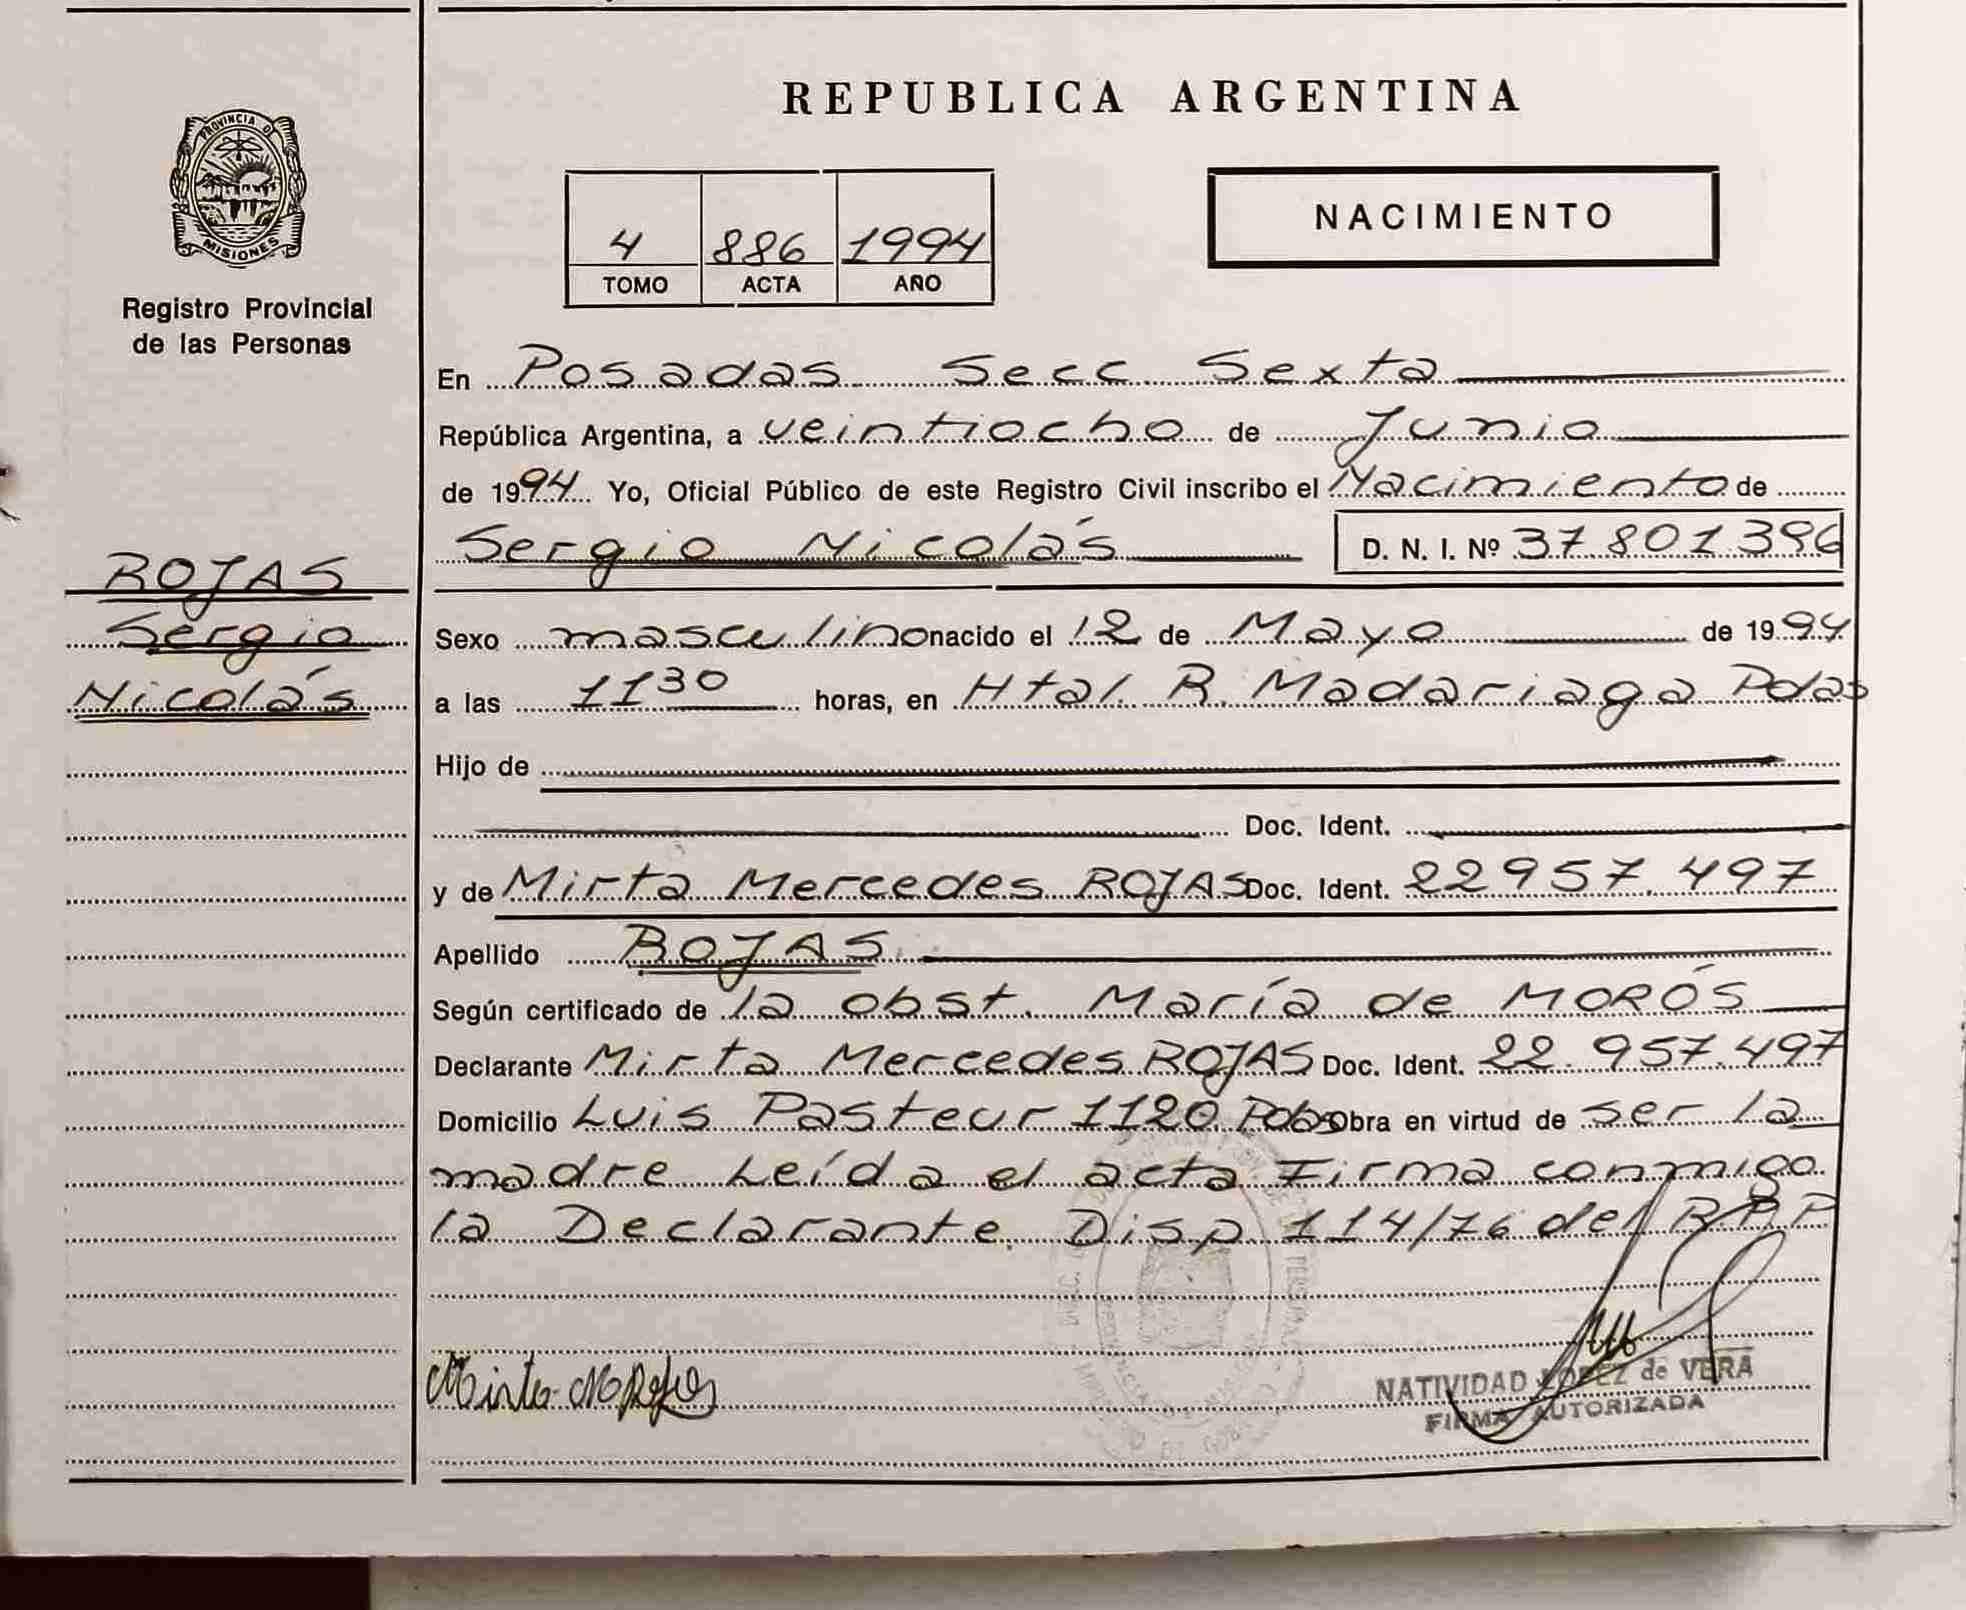 REPUBLICA ARGENTINA
PROVINCIA DE
MISIONES
Registro Provincial
de las Personas
4 886 1994
TOMO ACTA AÑO
NACIMIENTO
En Posadas Secc Sexta
República Argentina, a veintiocho de Junio
de 1994 Yo, Oficial Público de este Registro Civil inscribo el Nacimiento de
Sergio Nicolás D. N. I. Nº 37.801.396
ROJAS
Sergio
Nicolás
Sexo masculino nacido el 12 de Mayo de 1994
a las 11 30 horas, en Htal. R. Madariaga Pdas
Hijo de
Doc. Ident.
y de Mirta Mercedes ROJAS Doc. Ident. 22957.497
Apellido ROJAS
Según certificado de la obst. María de MORÓS
Declarante Mirta Mercedes ROJAS Doc. Ident. 22.957.497
Domicilio Luis Pasteur 1120 Pdas Obra en virtud de ser la
madre Leída el acta Firma conmigo
la Declarante. Disp 114/76 del R.P.P
NATIVIDAD LOPEZ de VERA
FIRMA AUTORIZADA